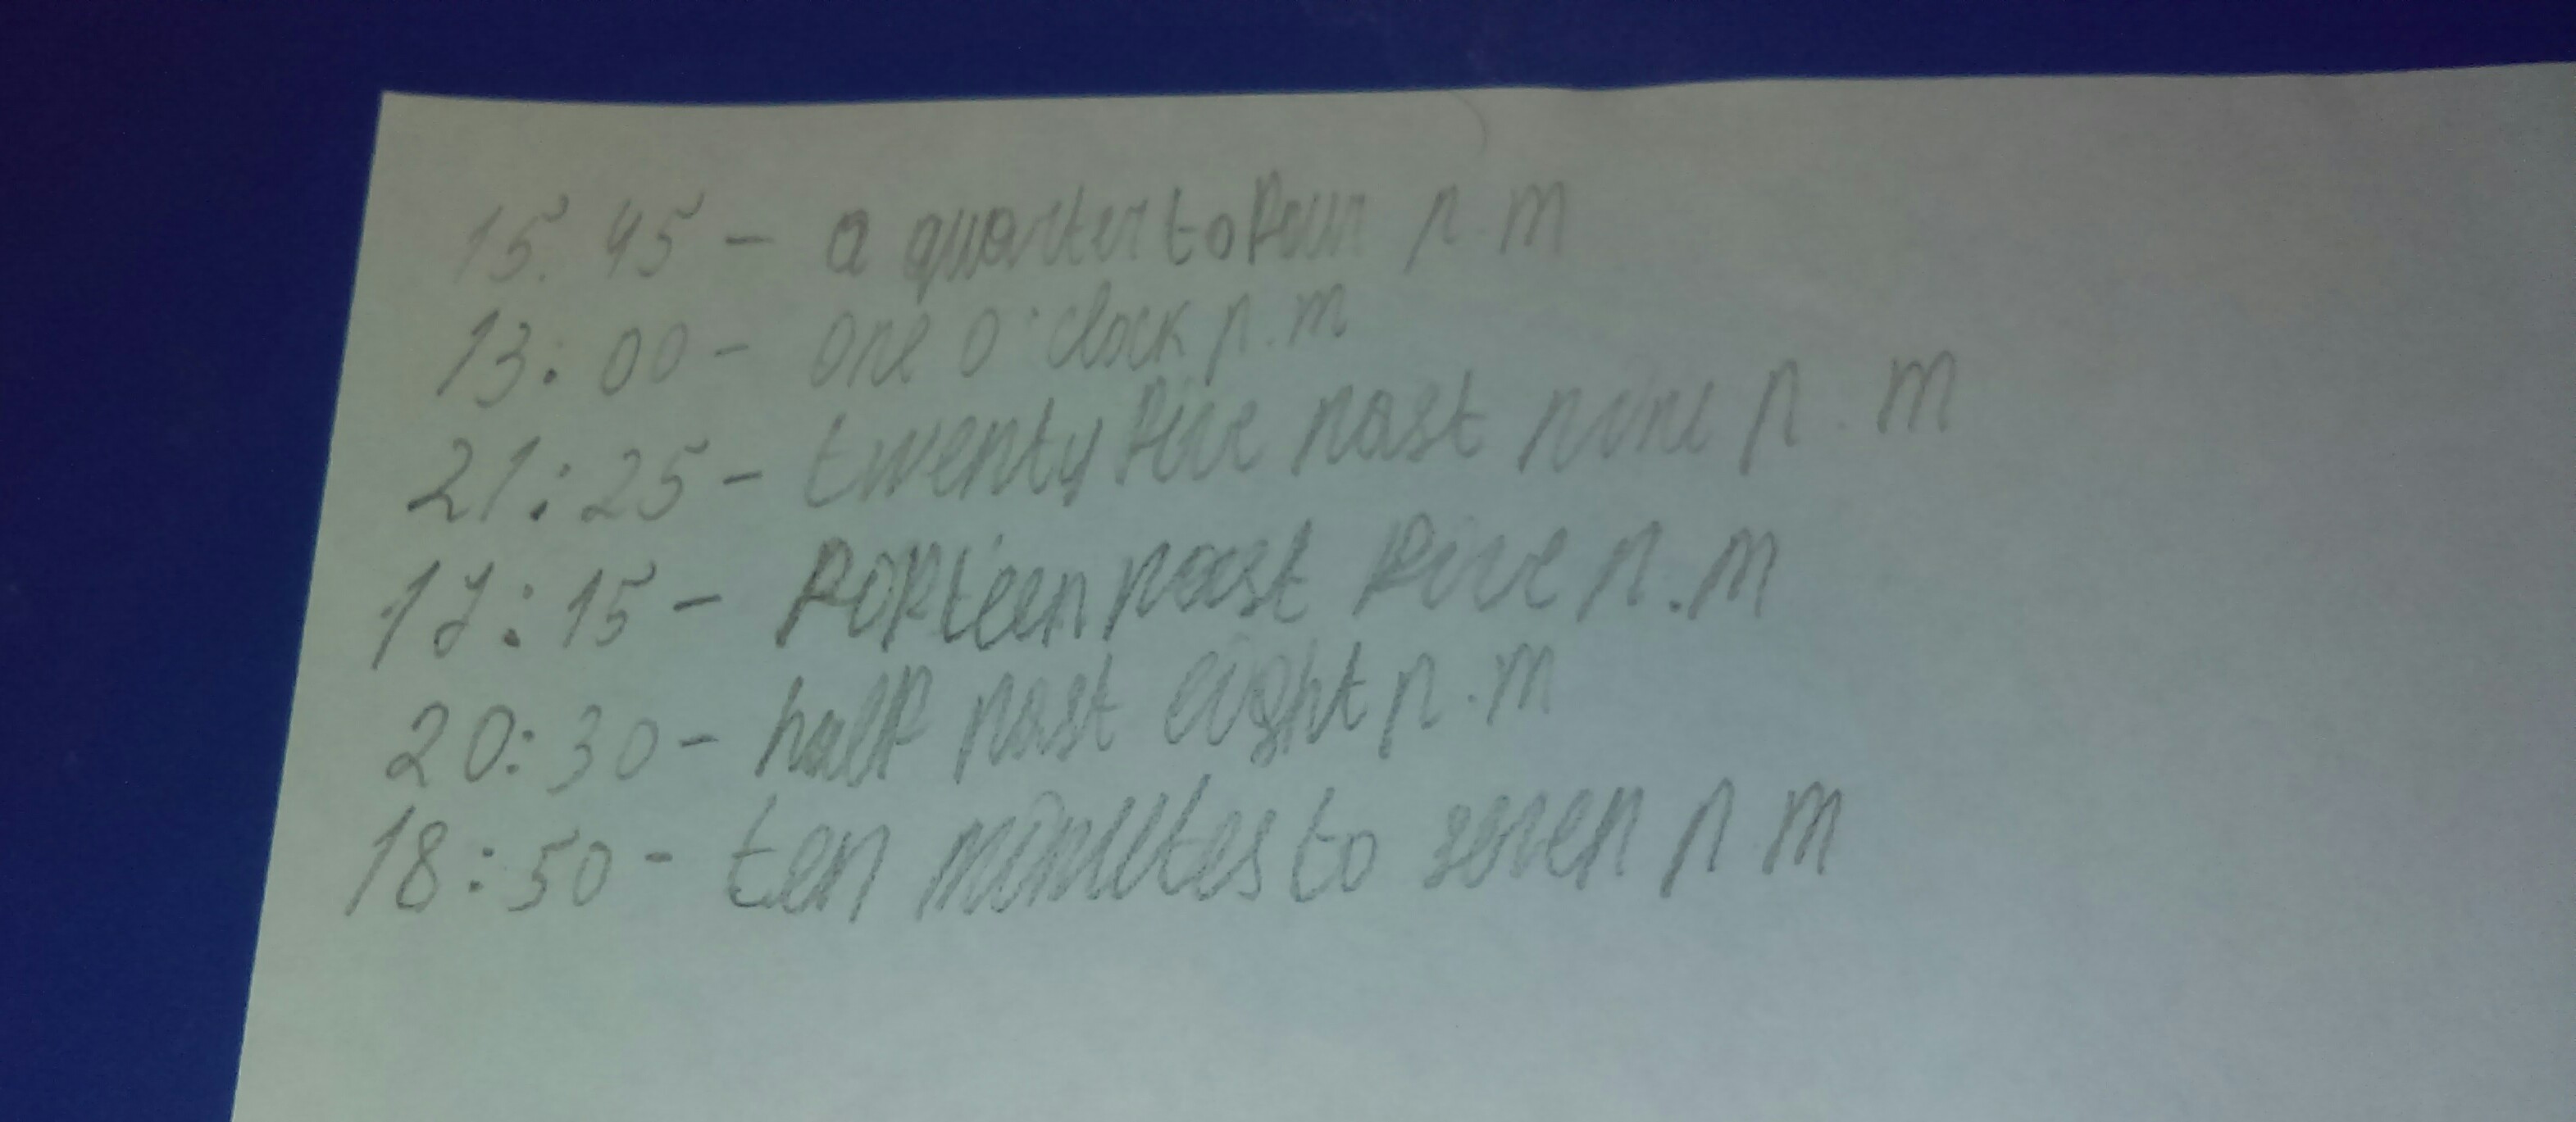 15.45 - a quarter to four p.m
13:00 - one o'clock p.m
21:25 - twenty five past nine p.m
17:15 - forteen past five p.m
20:30 - half past eight p.m
18:50 - ten minutes to seven p m